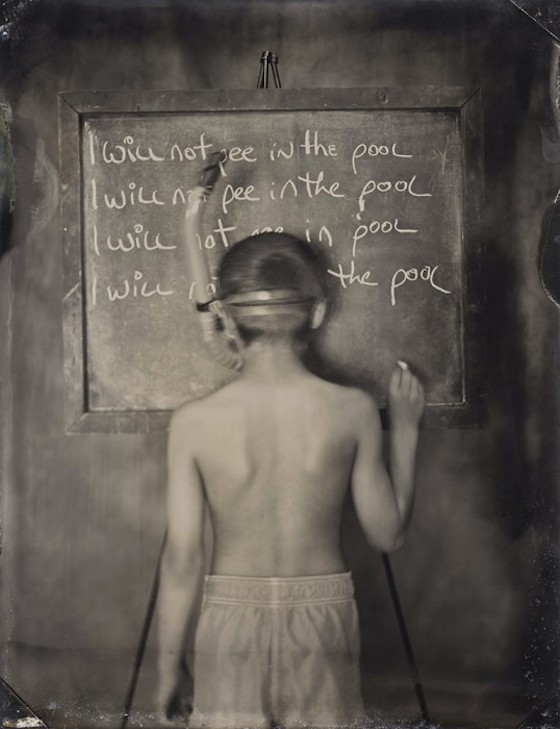 I will not pee in the pool
I will pee in the pool
I will in pool
I will the pool